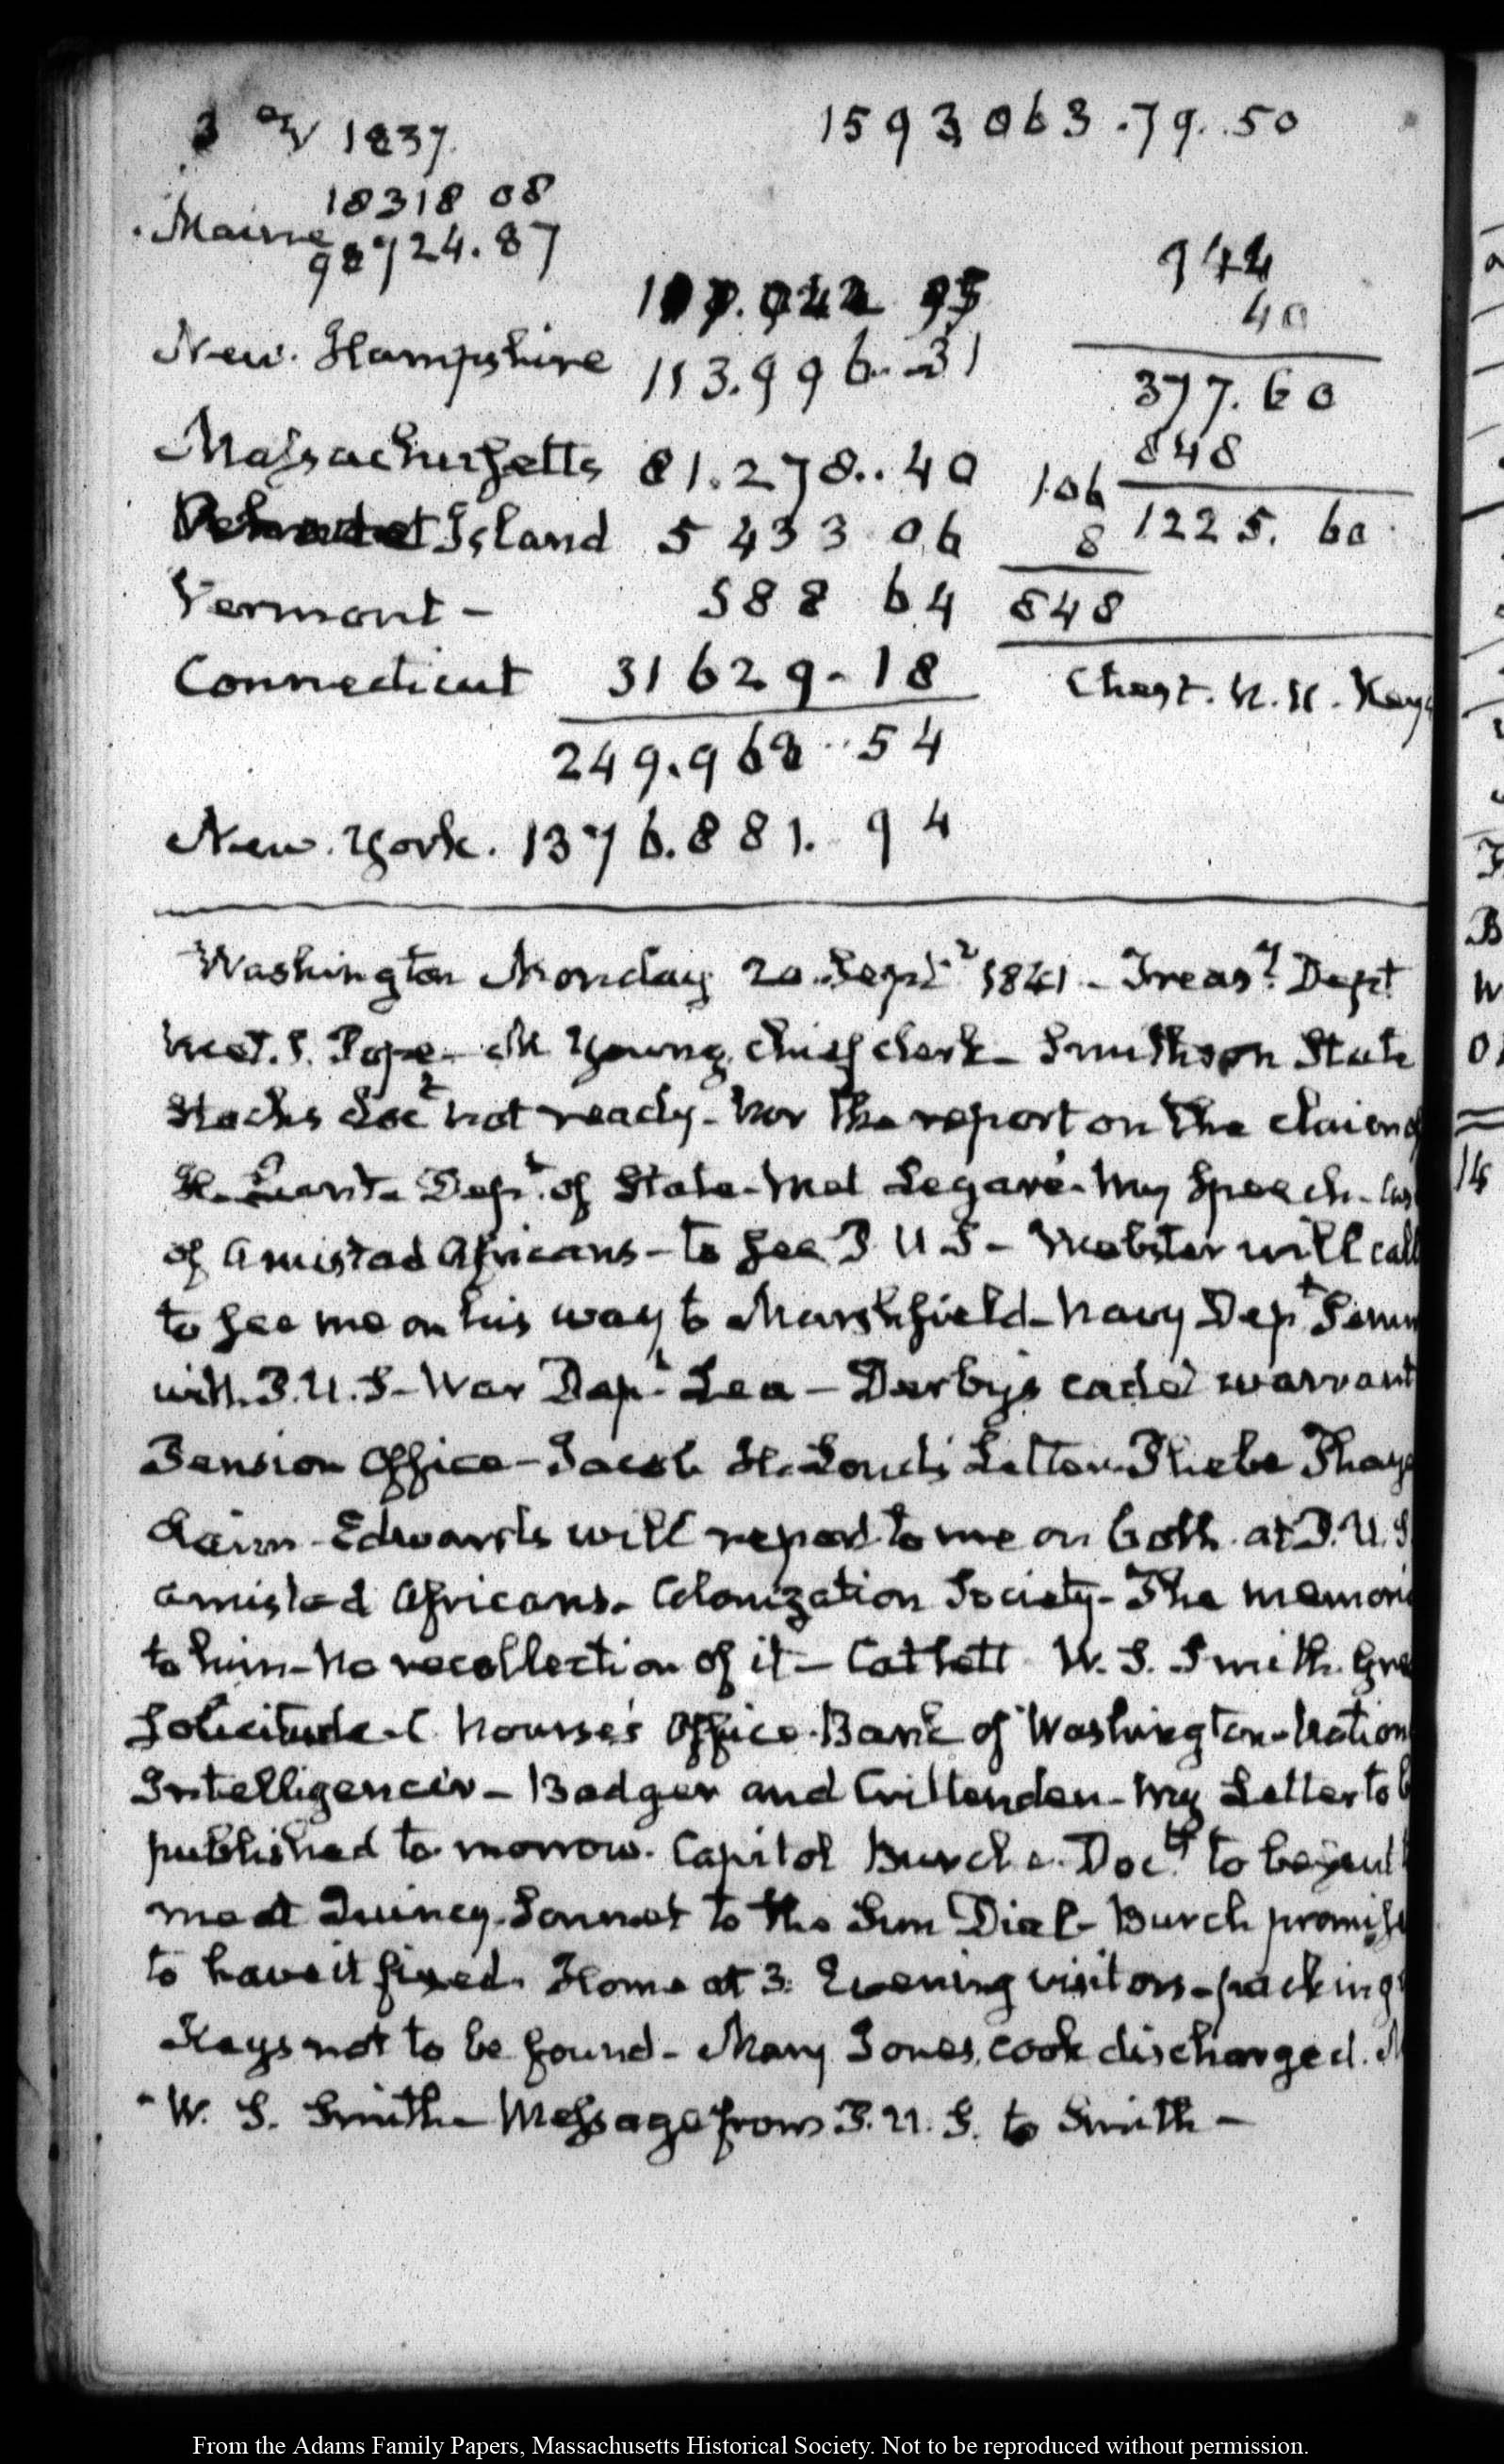 1837.
1593063.79.50
18318 08
Maine 98724.87
944
40
New Hampshire 113.996..31
377.60
Massachusetts 81.278..40
848
106
Island 5 433 06
8 1225. 60
Vermont - 588 64
848
Connecticut 31629-18
Chest. Keys
249.968..54
New York. 1376.881. 94
Washington Monday 20 Sept.r 1841 - Treas.y Dept
Met. Pope - Young chief clerk - Smithson State
Stocks doc.t not ready - nor the report on the claim of
Dep.t of State - met Legaré - My Speech -
of Amistad Africans - to see P U S - Webster will call
to see me on his way to Marshfield - Navy Dep.t
with P.U.S - War Dep.t Lea - Darby's cadet warrant
Pension Office - Jacob H. Loud's Letter Phebe
claim - Edwards will report to me on both. at P.U.S
Amistad Africans - Colonization Society - The
to him - no recollection of it - W. S. Smith
Solicitude - Nourse's Office - Bank of Washington -
Intelligencer - Badger and Crittenden - My Letter to
published to morrow. Capitol Burch Doc.ts to
me at Quincy. Sonnet to the Sun Dial - Burch
to have it fixed. Home at 3. Evening visitors - packing
Keys not to be found - Mary Jones, cook discharged.
W. S. Smith - Message from P.U.S. to Smith -
From the Adams Family Papers, Massachusetts Historical Society. Not to be reproduced without permission.